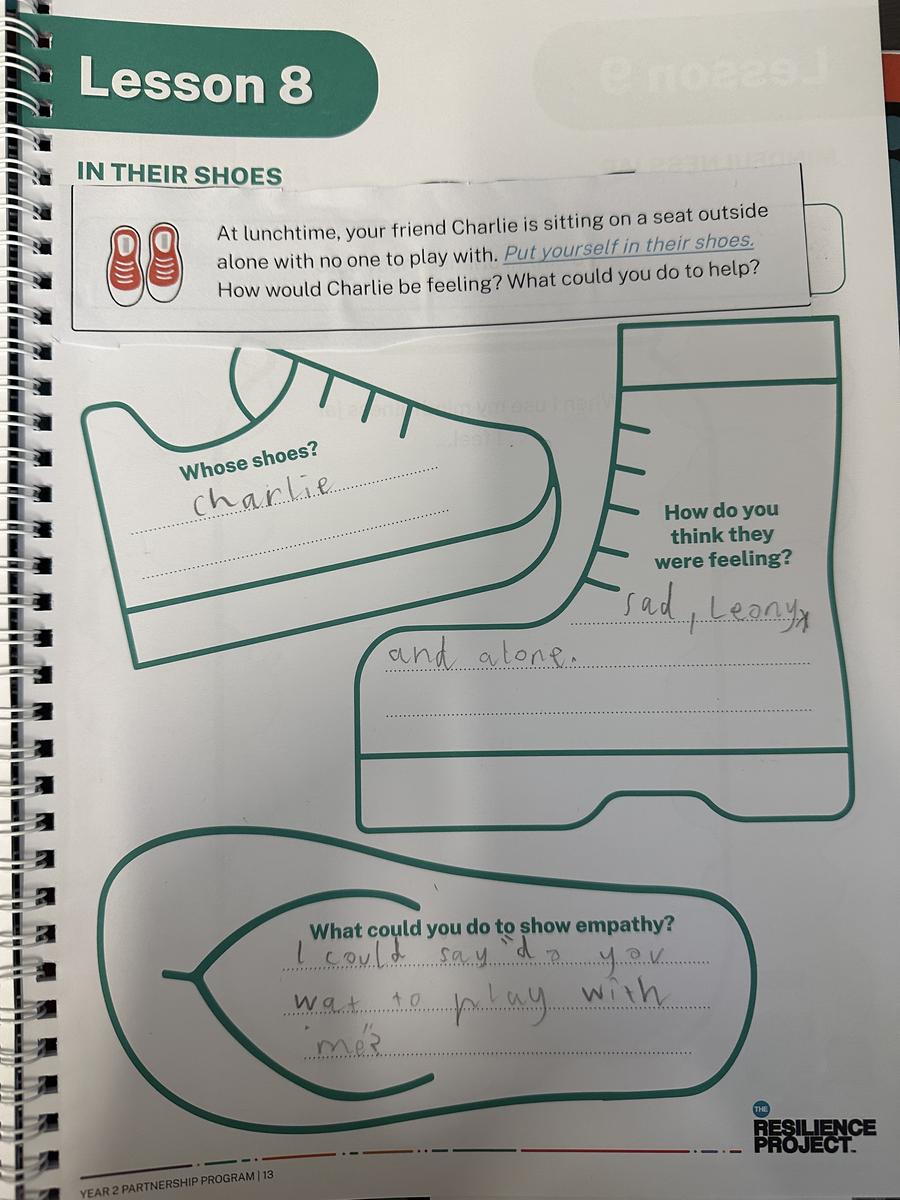 Lesson 8
IN THEIR SHOES
At lunchtime, your friend Charlie is sitting on a seat outside
alone with no one to play with. Put yourself in their shoes.
How would Charlie be feeling? What could you do to help?
Whose shoes?
charlie
How do you
think they
were feeling?
sad, Leony
and alone.
What could you do to show empathy?
I could say "do you
wat to play with
me?"
THE
RESILIENCE
PROJECT
YEAR 2 PARTNERSHIP PROGRAM | 13